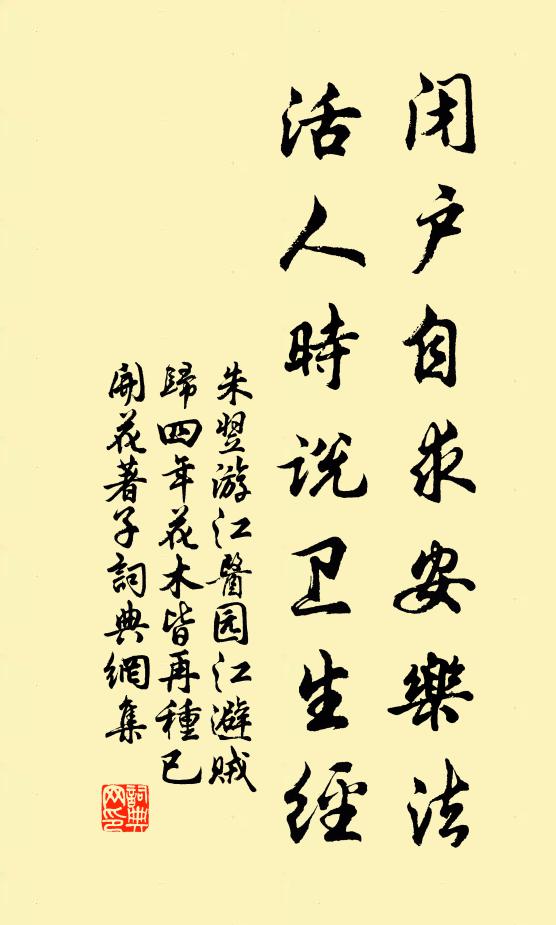 闭户自求安樂法
活人時说卫生經
朱翌游江醫园江避贼
歸四年花木皆再種已
開花著子詞典網集
詞典网印